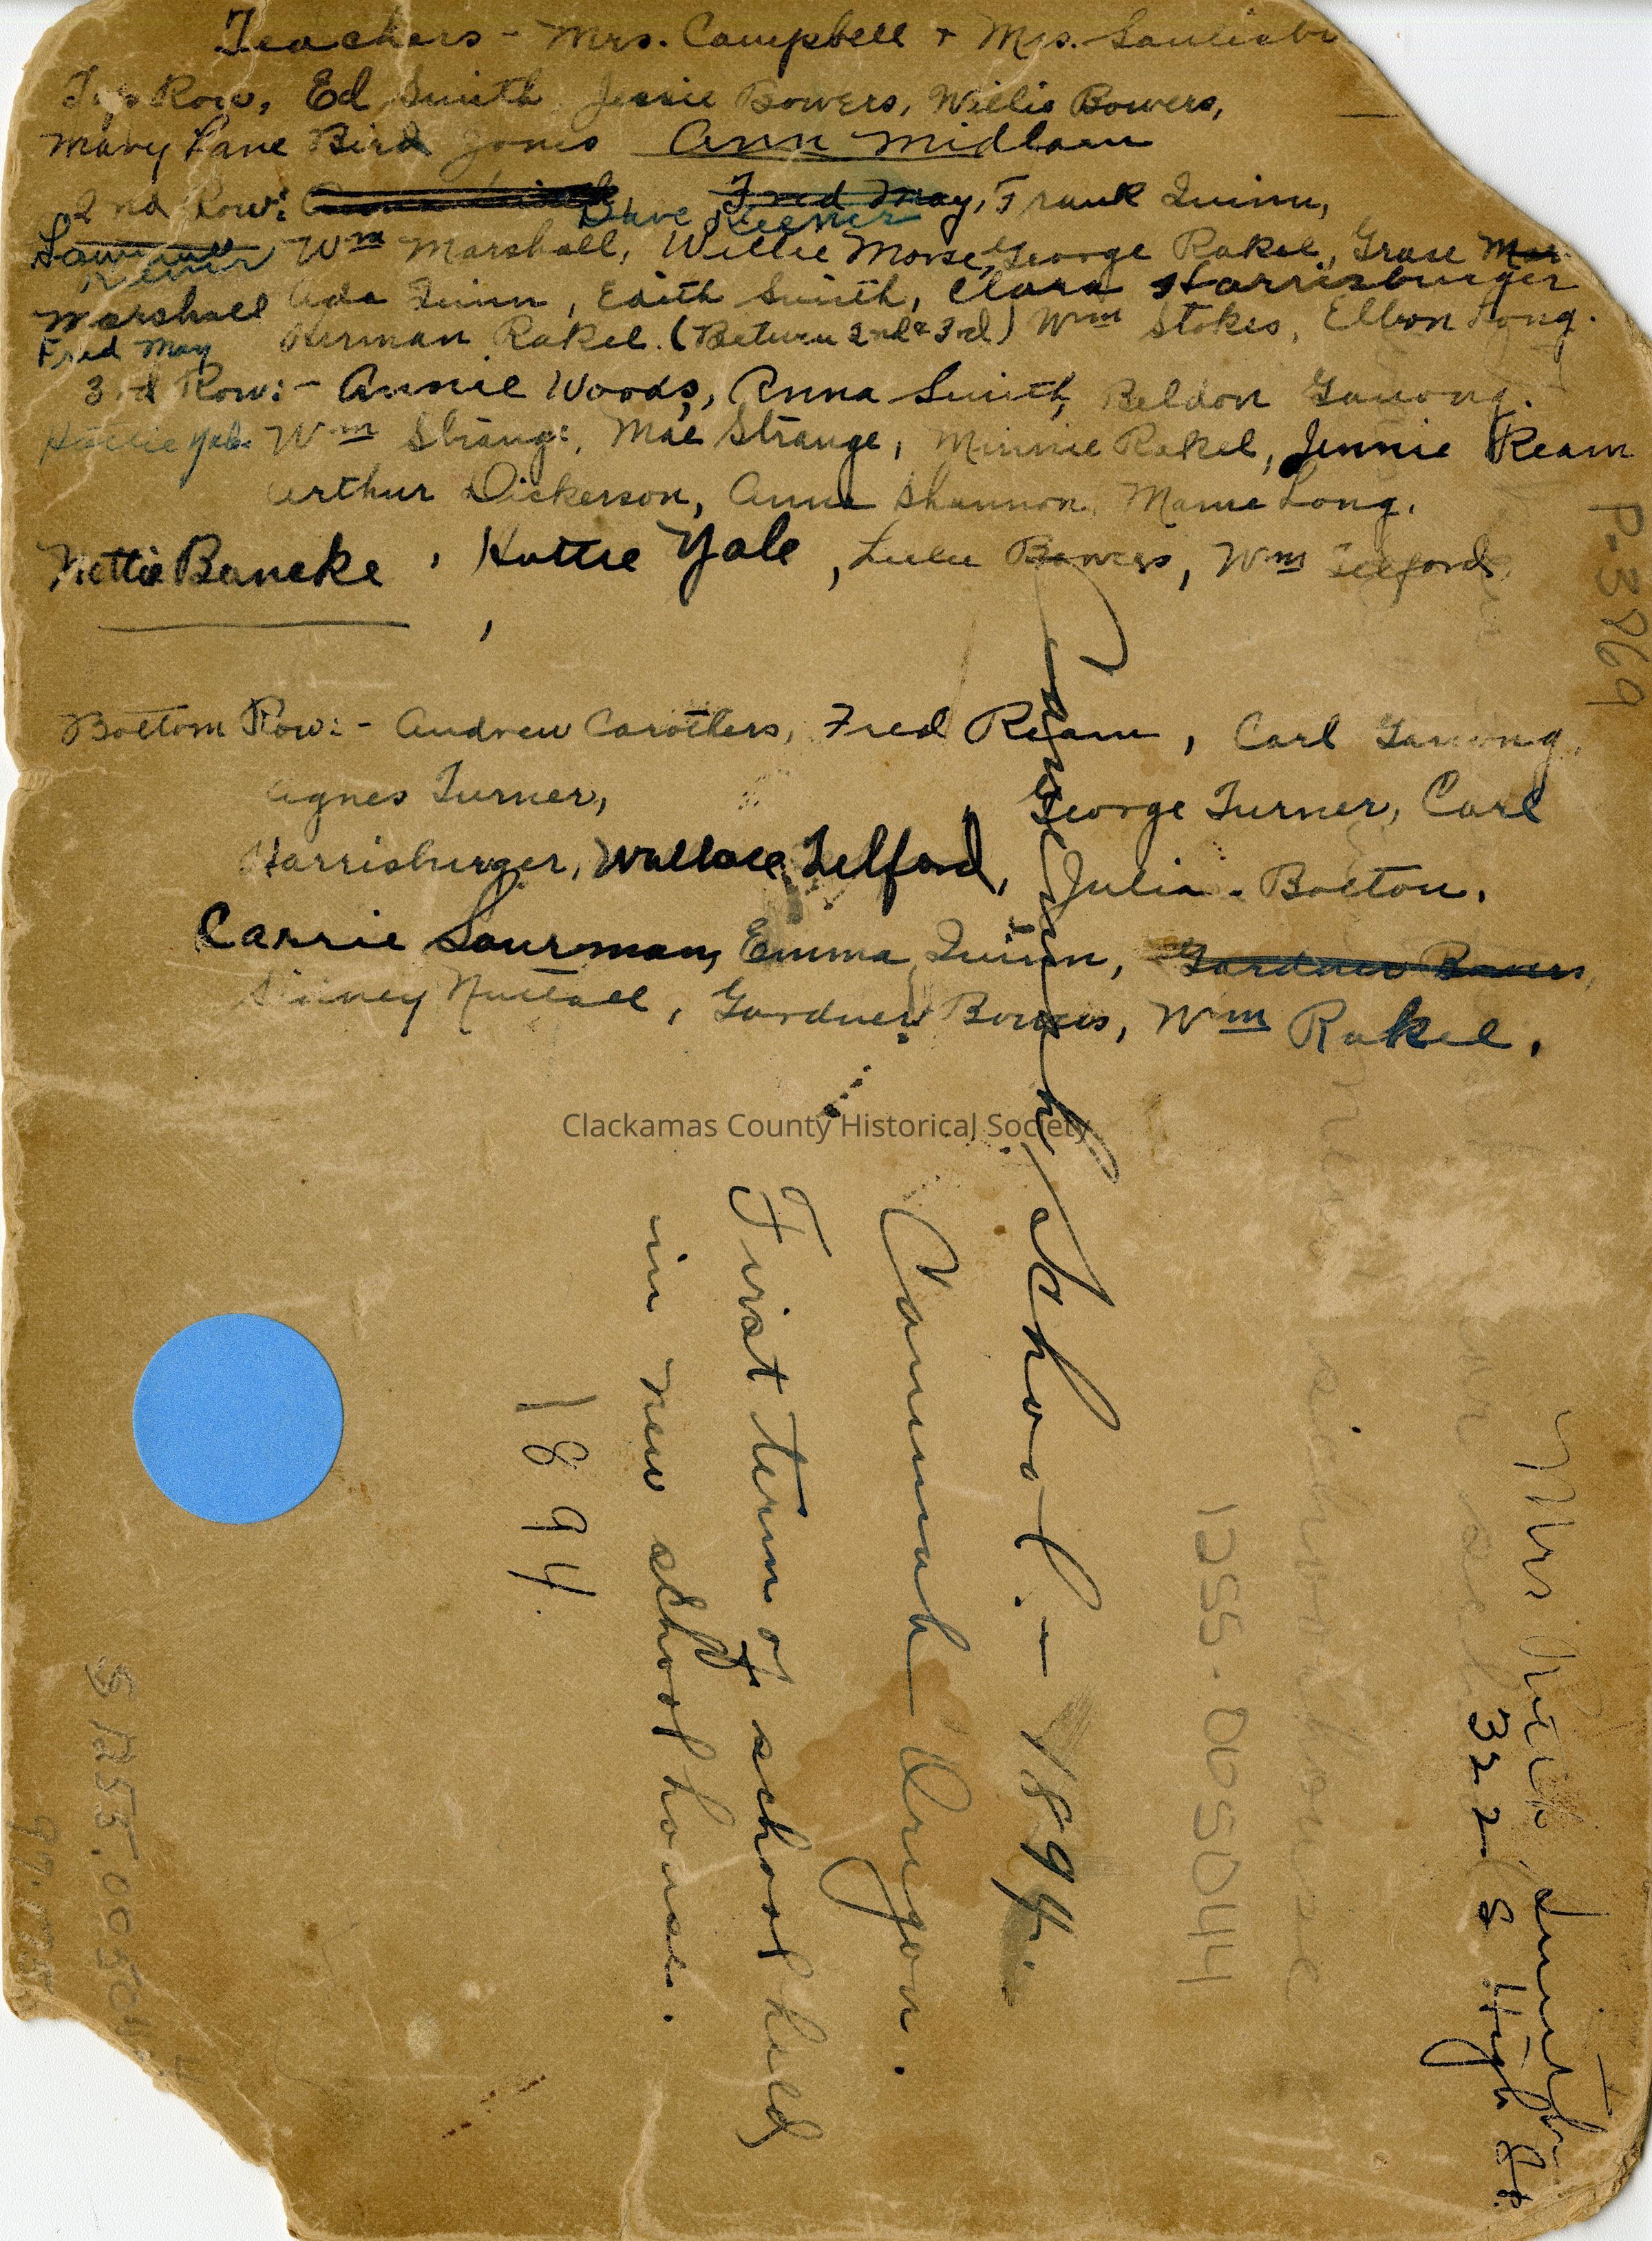 Teachers - Mrs. Campbell + Mrs.
Top Row, Ed Smith Jessie Bowers, Willis Bowers,
Mary Lane Bird Jones Ann Midlam
2nd Row: Fred May, Frank Quinn,
Dave Keener
Wm Marshall, Willie Morse, George Rakel, Grase Mar
Marshall Ada Quinn, Edith Smith, Clara Harrisburger
Fred May Herman Rakel. (Between 2nd & 3rd) Wm Stokes, Elbon Long.
3rd Row:- Annie Woods, Anna Smith, Beldon Ganong.
Hattie Yale Wm Strange, Mae Strange, Minnie Rakel, Jennie Ream
Arthur Dickerson, Anna Shannon, Mame Long.
Nettie Bancke, Hattie Yale, Lulu Bowers, Wm Telford,
Bottom Row:- Andrew Carothers, Fred Ream, Carl Ganong,
Agnes Turner, George Turner, Carl
Harrisburger, Wallace Telford, Julia Bolton.
Carrie Sourman, Emma Quinn, Gardner Bowers,
Sidney Nuttall, Gardner Bowers, Wm Rakel.
Canemah School. - 1894.
Canemah Oregon.
First term of school held
in new school house.
1894.
P-3869
1255.00S044
Mrs
322 S High St.
Clackamas County Historical Society